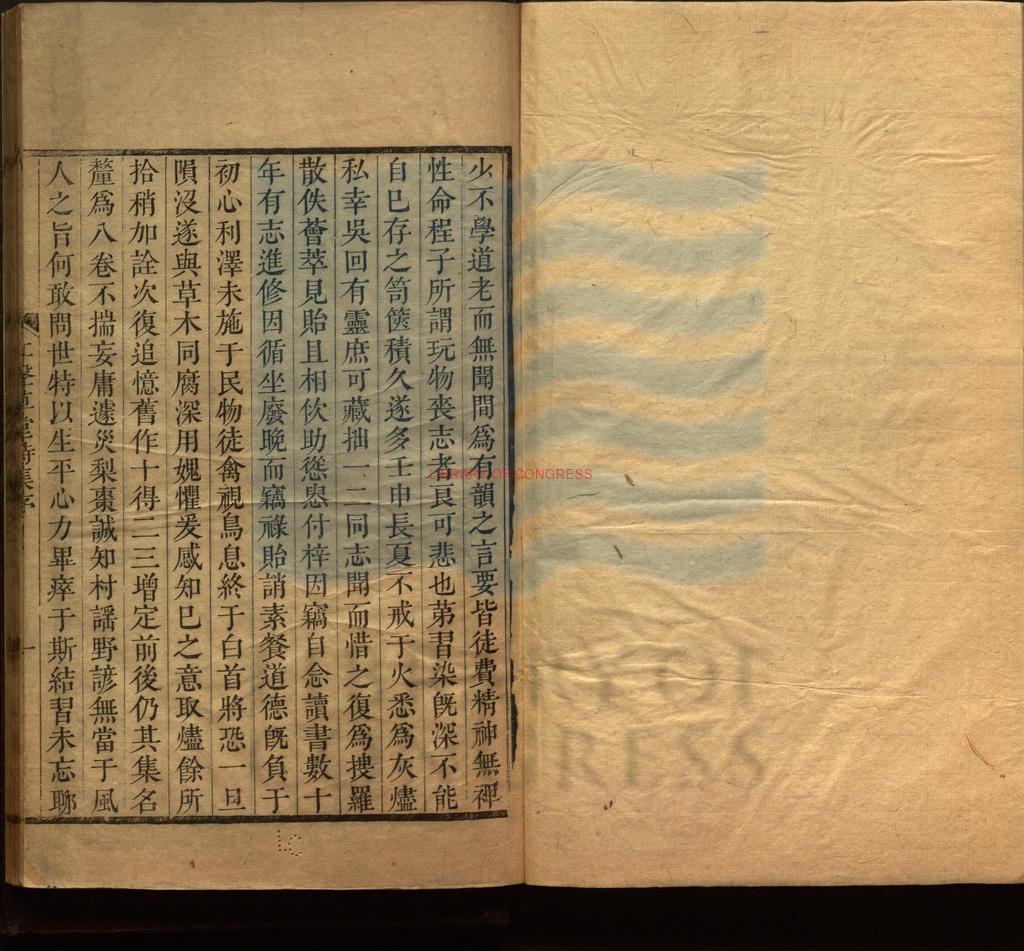 少不學道老而無聞間爲有韻之言要皆徒費精神無裨
性命程子所謂玩物喪志者良可悲也苐習染旣深不能
自已存之笥篋積久遂多壬申長夏不戒于火悉爲灰燼
私幸吳回有靈庶可藏拙一二同志聞而惜之復爲搜羅
散佚薈萃見貽且相佽助慫恿付梓因竊自念讀書數十
年有志進修因循坐廢晚而竊祿貽誚素餐道德旣負于
初心利澤未施于民物徒禽視鳥息終于白首將恐一旦
隕沒遂與草木同腐深用媿懼爰感知已之意取燼餘所
拾稍加詮次復追憶舊作十得二三增定前後仍其集名
釐爲八卷不揣妄庸遽災梨棗誠知村謡野諺無當于風
人之旨何敢問世特以生平心力畢瘁于斯結習未忘聊
草堂詩集序
一
LIBRARY OF CONGRESS
LC